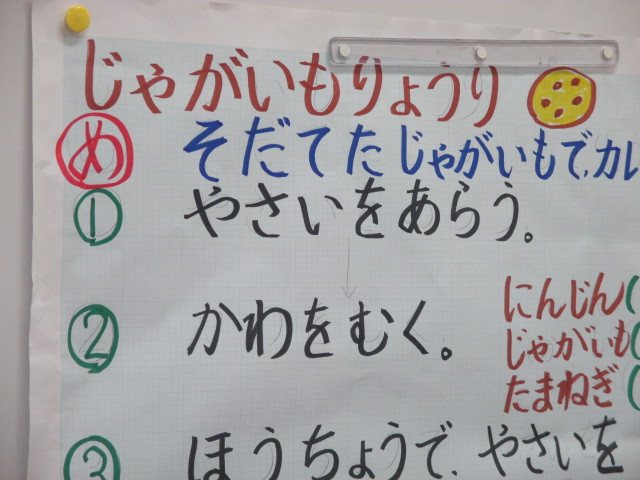 じゃがいもりょうり
め そだてたじゃがいもで、カレ
① やさいをあらう。
② かわをむく。
にんじん(
じゃがいも(
たまねぎ(
③ ほうちょうで、やさいを